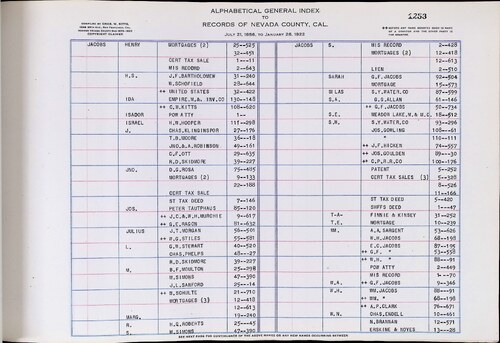 ALPHABETICAL GENERAL INDEX
TO
RECORDS OF NEVADA COUNTY, CAL.
1253
JACOBS HENRY MORTGAGES (2) 25--525
32--451
CERT TAX SALE 1--11
MIS RECORD 2--643
H.S. J.F.BARTHOLOMEW 31--240
N.SCHOFIELD 28--644
++ UNITED STATES 32--422
IDA EMPIRE,W.& INV.CO 130--148
++ C.H.KITTS 108--620
ISADOR POR ATTY 1--
ISRAEL H.W.HOOPER 111--298
J. CHAS.KLINGINSPOR 27--176
T.B.MOORE 36--18
JNO.G.A.ROBINSON 49--161
C.F.OTT 29--635
R.D.SKIDMORE 39--227
JNO. D.G.ROSA 75--425
MORTGAGES (2) 9--133
22--188
CERT TAX SALE
ST TAX DEED 7--146
JOS. PETER TAUTPHAUS 85--120
++ J.C.&W.H.MURCHIE 9--617
++ G.E.RAGON 81--632
JULIUS J.T.MORGAN 58--501
++ H.G.STILES 55--581
L. G.W.STEWART 40--520
CHAS.PHELPS 48--27
R.D.SKIDMORE 39--227
M. B.F.MOULTON 25--298
W.SIMONS 47--390
J.L.SANFORD 25--14
++ B.SCHULTE 21--710
MORTGAGES (3) 12--418
12--613
MARG. 19--240
N. H.G.ROBERTS 25--45
S. W.SIMONS 47--390
JACOBS S. MIS RECORD 2--428
MORTGAGES (2) 12--418
12--613
LIEN 2--510
SARAH G.F.JACOBS 92--504
MORTGAGE 15--573
SILAS S.Y.WATER CO. 87--599
S.A. G.S.ALLAN 61--146
++ G.F.JACOBS 50--734
S.E. MEADOW LAKE,W.& M.C. 18--512
S.R. S.Y.WATER CO. 93--296
JOS.GOWLING 108--61
" 110--111
++ J.F.HACKER 74--557
++ JOS.GOULDEN 89--30
++ C.P.R.R.CO 100--176
PATENT 5--252
CERT TAX SALES (3) 5--328
8--526
11--166
ST TAX DEED 5--420
SHFFS DEED 1--47
T-A- FINNIE & KINSEY 31--252
T.E. MORTGAGE 10--239
WM. A.A.SARGENT 53--626
W.H.JACOBS 68--198
E.C.JACOBS 87--195
++ G.F. " 53--558
++ W.H. " 88--91
POR ATTY 2--449
MIS RECORD 4--70
W.A. ++ G.F.JACOBS 9--346
W.H. WM.JACOBS 88--91
++ WM. " 68--198
++ A.P.CLARK 74--671
W.N. CHAS.ENDELL 10--451
N.BRANNAN 12--571
ERSKINE & NOYES 13--28